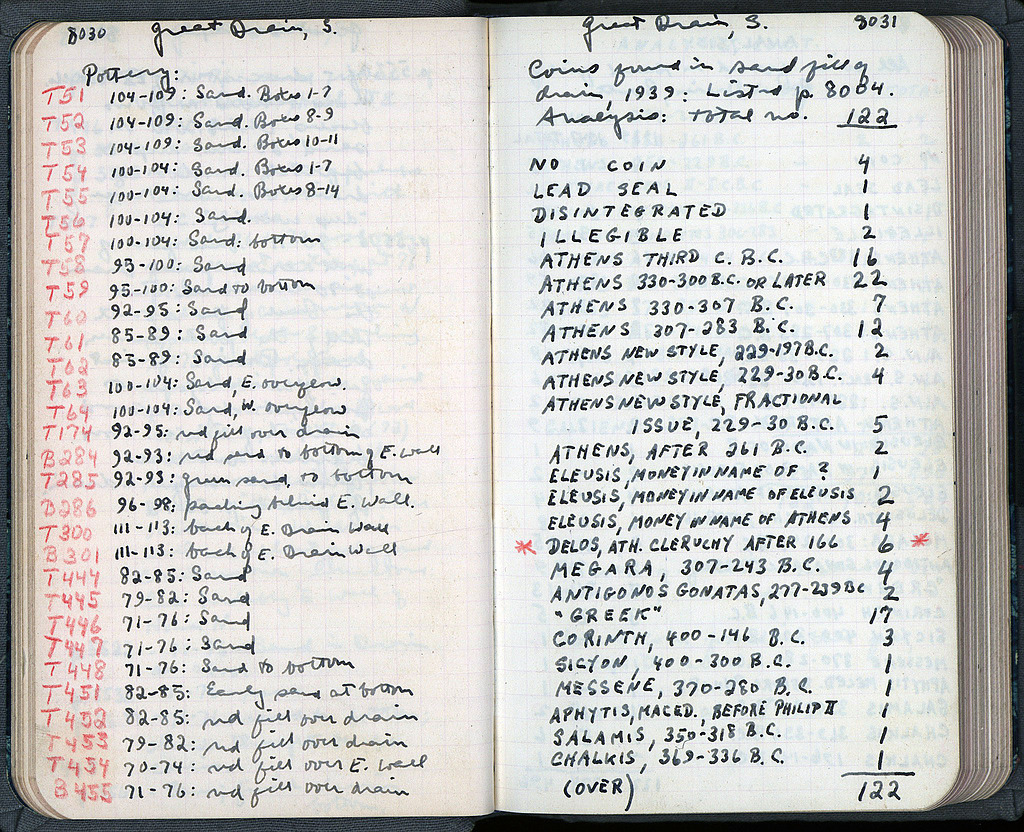 8030 Great Drain, S.
Pottery:
T51 104-109: Sand. Boxes 1-7
T52 104-109: Sand. Boxes 8-9
T53 104-109: Sand. Boxes 10-11
T54 100-104: Sand. Boxes 1-7
T55 100-104: Sand. Boxes 8-14
T56 100-104: Sand.
T57 100-104: Sand. bottom
T58 95-100: Sand
T59 95-100: Sand to bottom
T60 92-95: Sand
T61 85-89: Sand
T62 85-89: Sand
T63 100-104: Sand, E. overflow.
T64 100-104: Sand, W. overflow
T174 92-95: rd fill over drain
B284 92-93: rd sand to bottom of E. Wall
T285 92-93: green sand, to bottom
B286 96-98: packing behind E. Wall.
T300 111-113: back of E. Drain Wall
B301 111-113: back of E. Drain Wall
T444 82-85: Sand
T445 79-82: Sand
T446 71-76: Sand
T447 71-76: Sand
T448 71-76: Sand to bottom
T451 82-85: Early sand at bottom
T452 82-85: rd fill over drain
T453 79-82: rd fill over drain
T454 70-74: rd fill over E. Wall
B455 71-76: rd fill over drain
Great Drain, S. 8031
Coins found in sand fill of
drain, 1939: Listed p. 8004.
Analysis: total no. 122
NO COIN 4
LEAD SEAL 1
DISINTEGRATED 1
ILLEGIBLE 2
ATHENS THIRD C. B.C. 16
ATHENS 330-300 B.C. OR LATER 22
ATHENS 330-307 B.C. 7
ATHENS 307-283 B.C. 12
ATHENS NEW STYLE, 229-197 B.C. 2
ATHENS NEW STYLE, 229-30 B.C. 4
ATHENS NEW STYLE, FRACTIONAL
ISSUE, 229-30 B.C. 5
ATHENS, AFTER 261 B.C. 2
ELEUSIS, MONEY IN NAME OF ? 1
ELEUSIS, MONEY IN NAME OF ELEUSIS 2
ELEUSIS, MONEY IN NAME OF ATHENS 4
* DELOS, ATH. CLERUCHY AFTER 166 6 *
MEGARA, 307-243 B.C. 4
ANTIGONOS GONATAS, 277-239 BC 2
"GREEK" 17
CORINTH, 400-146 B.C. 3
SICYON, 400-300 B.C. 1
MESSENE, 370-280 B.C. 1
APHYTIS, MACED., BEFORE PHILIP II 1
SALAMIS, 350-318 B.C. 1
CHALKIS, 369-336 B.C. 1
(OVER) 122